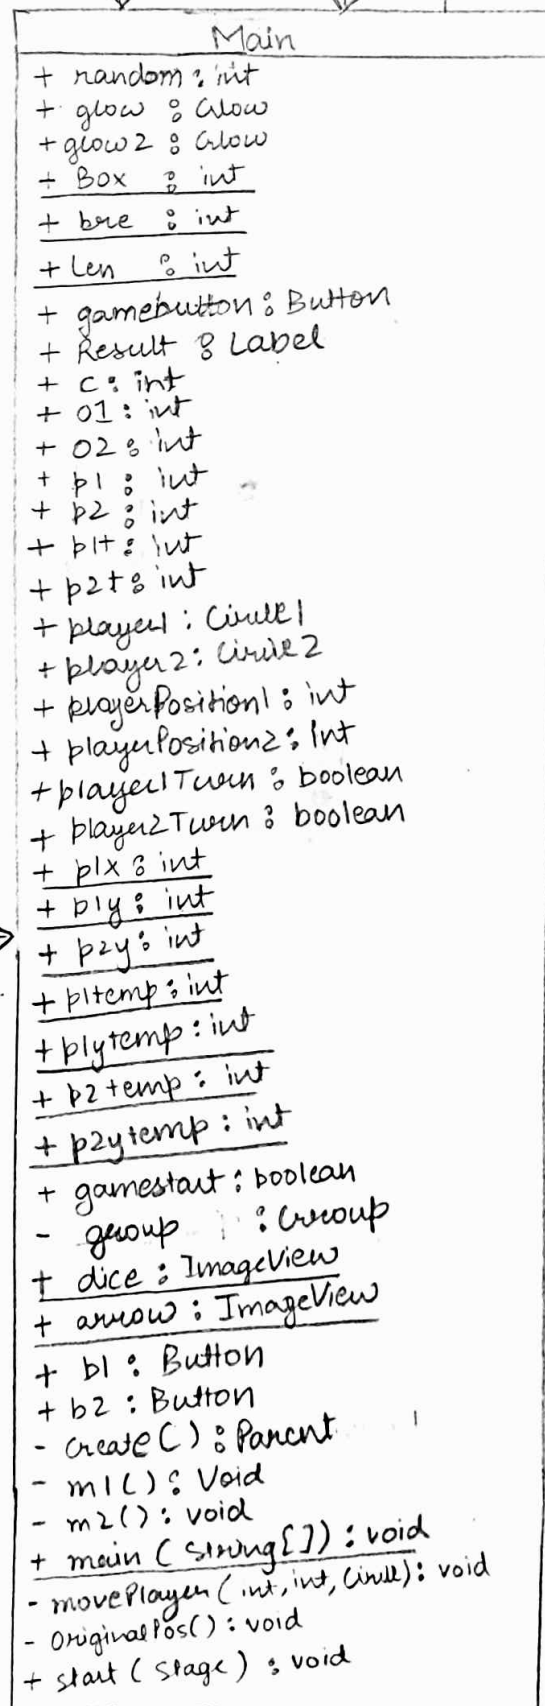 Main
+ random : int
+ glow : Glow
+ glow2 : Glow
+ Box : int
+ bre : int
+ len : int
+ gamebutton : Button
+ Result : Label
+ c : int
+ o1 : int
+ o2 : int
+ p1 : int
+ p2 : int
+ p1t : int
+ p2t : int
+ player1 : Circle1
+ player2 : Circle2
+ playerPosition1 : int
+ playerPosition2 : Int
+ player1Turn : boolean
+ player2Turn : boolean
+ p1x : int
+ p1y : int
+ p2y : int
+ p1temp : int
+ p1ytemp : int
+ p2temp : int
+ p2ytemp : int
+ gamestart : boolean
- group : Group
+ dice : ImageView
+ arrow : ImageView
+ b1 : Button
+ b2 : Button
- Create() : Parent
- m1() : Void
- m2() : void
+ main (String[]) : void
- movePlayer (int, int, Circle) : void
- OriginalPos() : void
+ start (Stage) : void